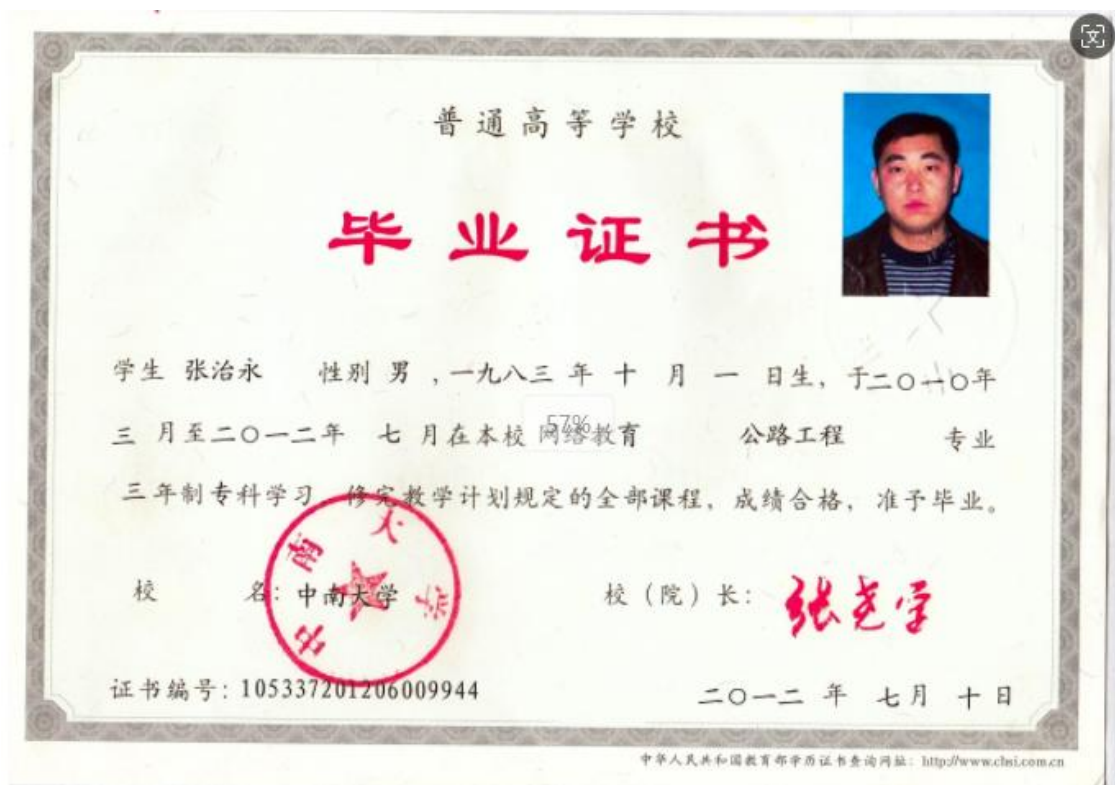 普通高等学校
毕业证书
学生 张治永 性别 男 ,一九八三 年 十 月 一 日生, 于二〇一〇年
三 月至二〇一二年 七 月在本校 网络教育 公路工程 专业
57%
三年制专科学习, 修完教学计划规定的全部课程, 成绩合格, 准予毕业。
中南大学
校 名: 中南大学 校(院)长: 张尧学
证书编号: 105337201206009944 二〇一二 年 七月 十日
中华人民共和国教育部学历证书查询网址: http://www.chsi.com.cn